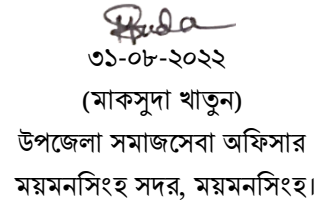 ৩১-০৮-২০২২
(মাকসুদা খাতুন)
উপজেলা সমাজসেবা অফিসার
ময়মনসিংহ সদর, ময়মনসিংহ।